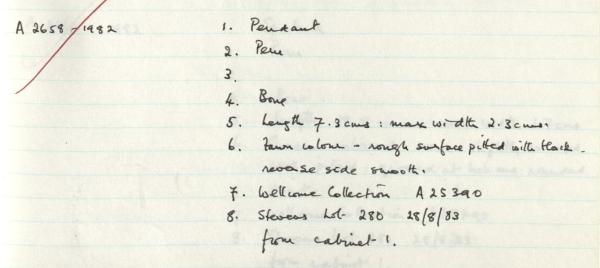 A 2658-1982
1. Pendant
2. Peru
3.
4. Bone
5. Length 7.3cms : max width 2.3cms.
6. Fawn colour - rough surface pitted with black -
reverse side smooth.
7. Wellcome Collection A 25390
8. Stevens Lot 280 28/8/03
from cabinet 1.